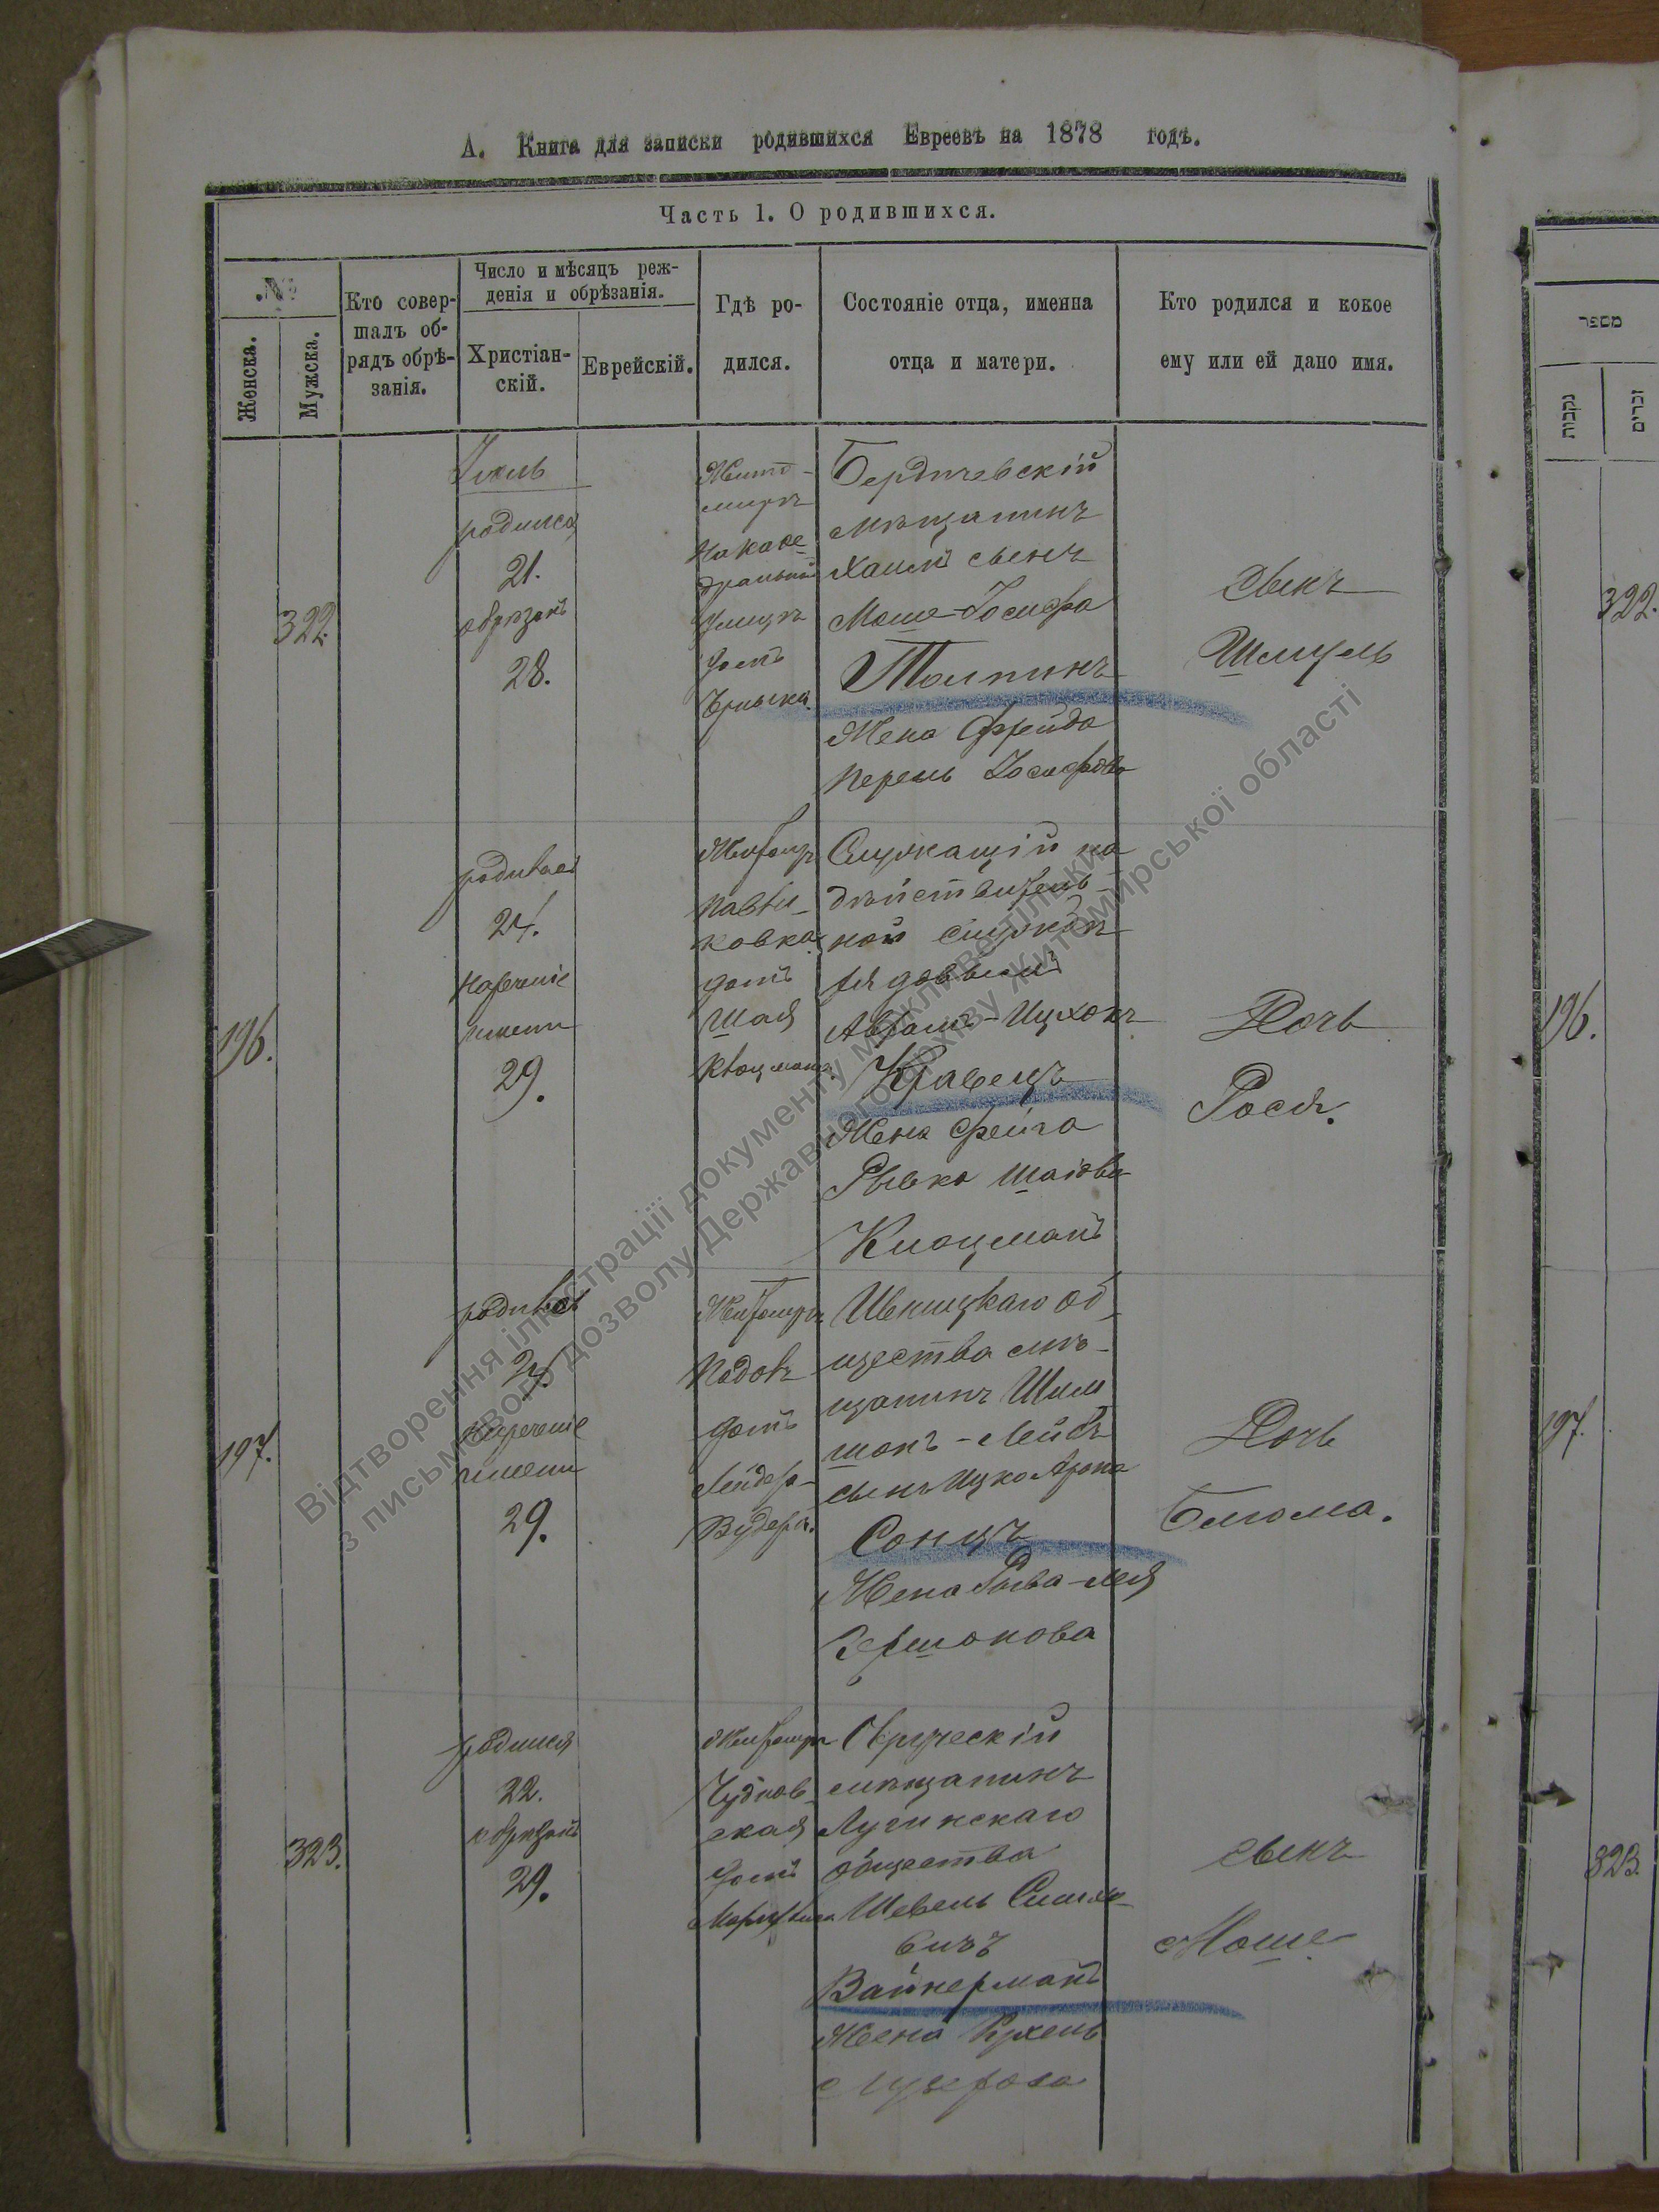 А. Книга для записки родившихся Евреевъ на 1878 годъ.
Часть 1. О родившихся.
№
Женска.
Мужска.
Кто совер-
шалъ об-
рядъ обрѣ-
занія.
Число и мѣсяцъ реж-
денія и обрѣзанія.
Христіан-
скій.
Еврейскій.
Гдѣ ро-
дился.
Состояніе отца, именна
отца и матери.
Кто родился и кокое
ему или ей дано имя.
322.
родился
21.
обрѣзанъ
28.
Жито-
миръ
На Каѳе-
дральной
улицѣ
домъ
Бердичевскій
мѣщанинъ
Хаимъ сынъ
Моше-Іосифа
Талпинъ
Жена Фрейда
Перель Іосифова
Сынъ
Шмуль
196.
родилась
24.
Нареченіе
имени
29.
Житомиръ
Павли-
ковка
домъ
Шая
Клоцмана
Служащій на
дѣйствитель-
ной службѣ
рядовымъ
Аврамъ-Ицхокъ
Кравецъ
Жена Фейга
Рывка Шаіова
Клоцманъ
Дочь
Рося.
197.
родилась
24.
Нареченіе
имени
29.
Житомиръ
Подолъ
домъ
Ивницкаго об-
щества мѣ-
щанинъ Шим
шонъ-Лейбъ
сынъ Ицко Арона
Сонцъ
Жена Рыва-Лея
Гершонова
Дочь
Блюма.
323.
родился
22.
обрѣзанъ
29.
Житомиръ
Чуднов-
ская
домъ
Овручскій
мѣщанинъ
Лугинскаго
общества
Шевель
вичъ
Вайнерманъ
Жена Рухель
Сынъ
Моше
מספר
נקבות
זכרים
322.
196.
197.
323.
Відтворення ілюстрації документу можливе тільки
з письмового дозволу Державного архіву Житомирської області